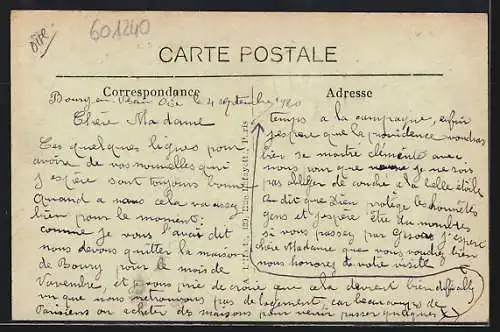 OISE
601240
CARTE POSTALE
Correspondance
Adresse
Bourg en Vexin Oise le 4 septembre 1920
Chère Madame
Ces quelques lignes pour
avoire de vos nouvelles qui
j'espère sont toujours bonne
Quand a nous cela va assez
bien pour le moment:
comme je vous l'avais dit
nous devons quitter la maison
de Boury pour le mois de
Novembre, et je vous prie de croire que cela devient bien difficille
vu que nous ne trouvons pas de logement, car beaucoups de
Parisiens on acheter des maisons pour venir passer quelques
temps a la campagne, enfin
j'espere que la providence voudras
bien se montré clémente avec
nous pour que je ne sois
pas obliger de couche a la belle étoile
On dit que Dieu protège les honnêtes
gens et j'espère être du nombres
si vous passez par Gisors j'espere
chère Madame que vous voudrez bien
nous honorez de votre visite